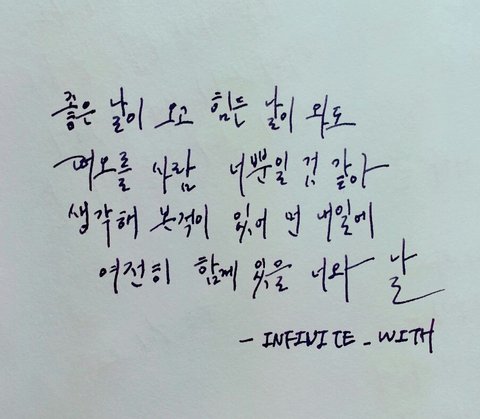 좋은 날이 오고 힘든 날이 와도
떠오를 사람 너뿐일 것 같아
생각해 본적이 있어 먼 내일에
여전히 함께 있을 너와 날
- INFINITE_WITH